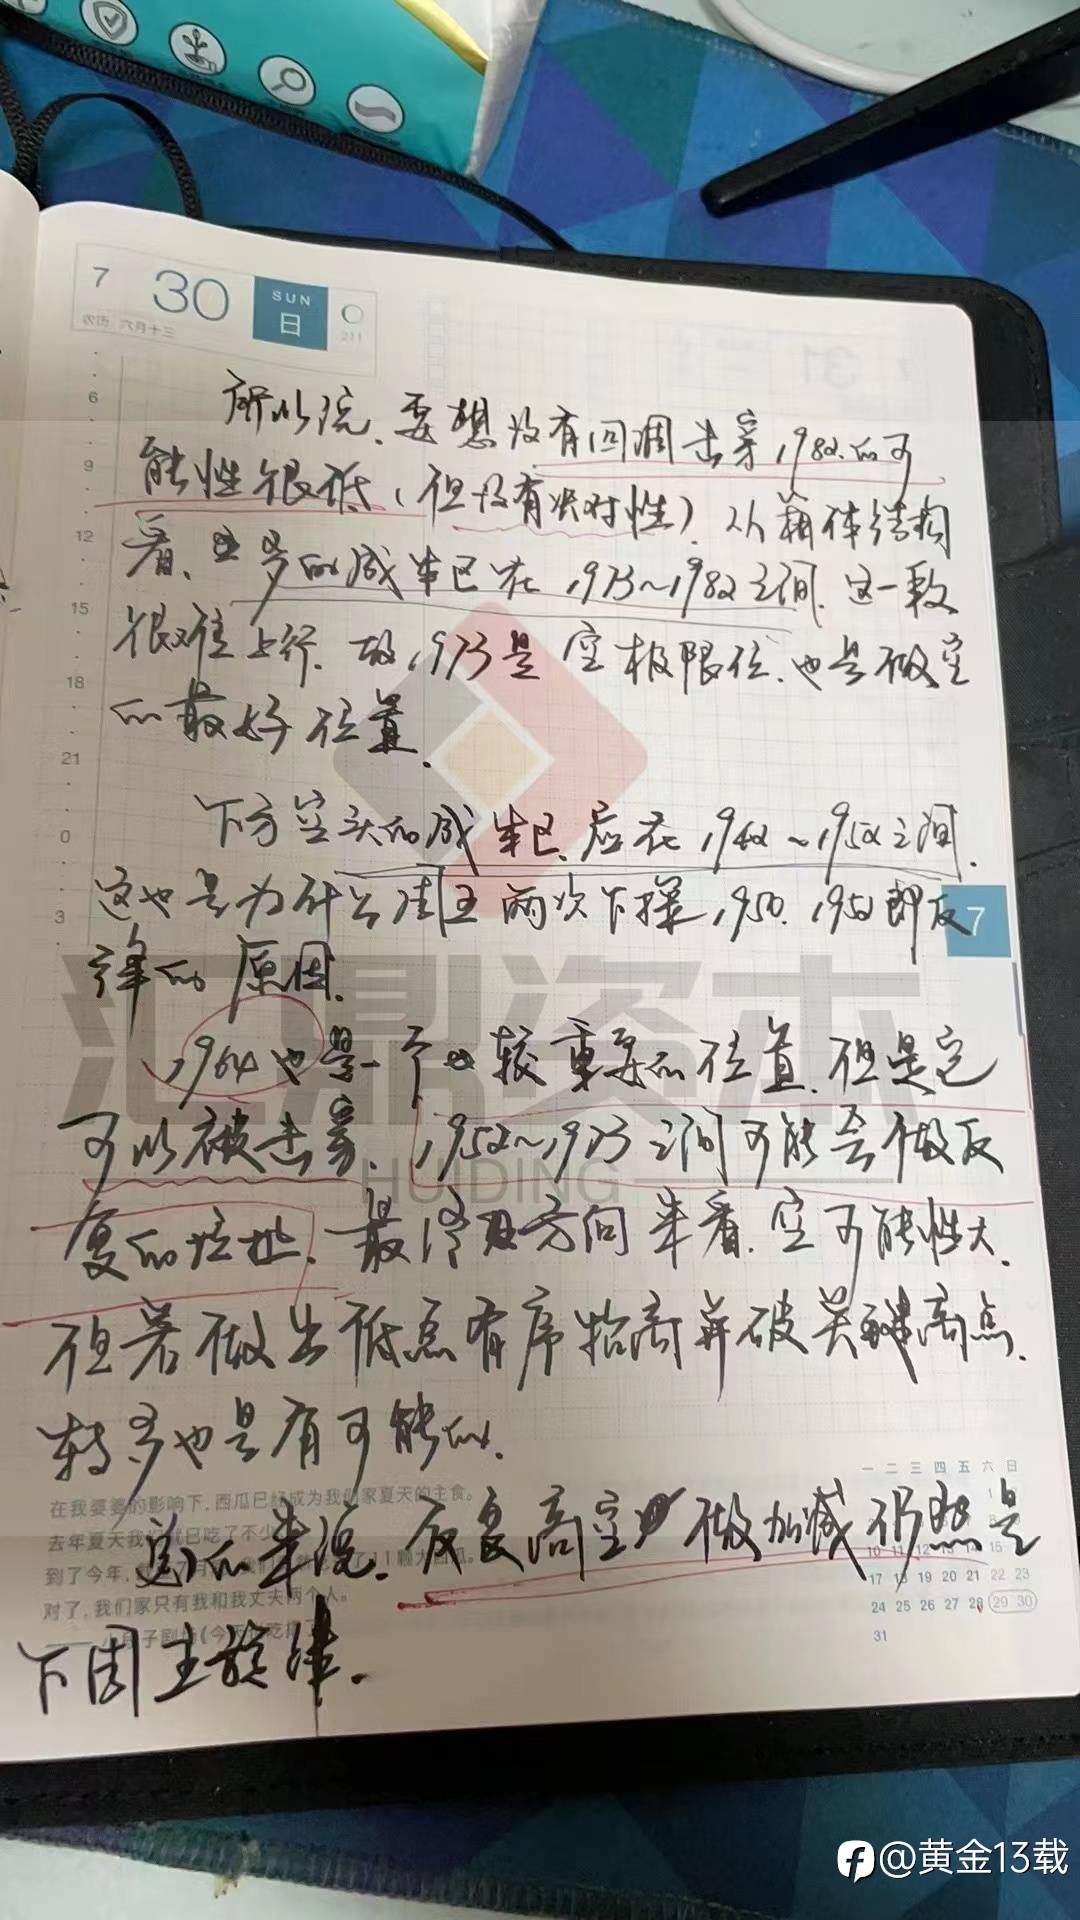 7 30 SUN 日
农历 六月十三 211
所以说、要想没有回调击穿1982的可
能性很低（但没有决对性）从整体结构
看、多的成本区在1973~1982之间、这一段
很难上行、故1973是空极限位、也是做空
的最好位置.
下方空头的成本区、应在1942~1952之间.
这也是为什么周五两次下探1950、1952即反
弹的原因.
1964也是一个比较重要的位置、但是它
可以被击穿、1952~1973之间可能会做反
复的拉扯、最终方向来看、空可能性大.
但若做出低点有序抬高并破关键高点、
转多也是有可能的.
总的来说、反复高空 做加减仍然是
下周主旋律.
6
9
12
15
18
21
0
3
7
汇鼎资本
HUIDING
在我婆婆的影响下，西瓜已经成为我们家夏天的主食。
去年夏天我们就已吃了不少
到了今年，
对了，我们家只有我和我丈夫两个人。
一 二 三 四 五 六 日
10 11 12 13 14 15
17 18 19 20 21 22 23
24 25 26 27 28 29 30
31
@黄金13载